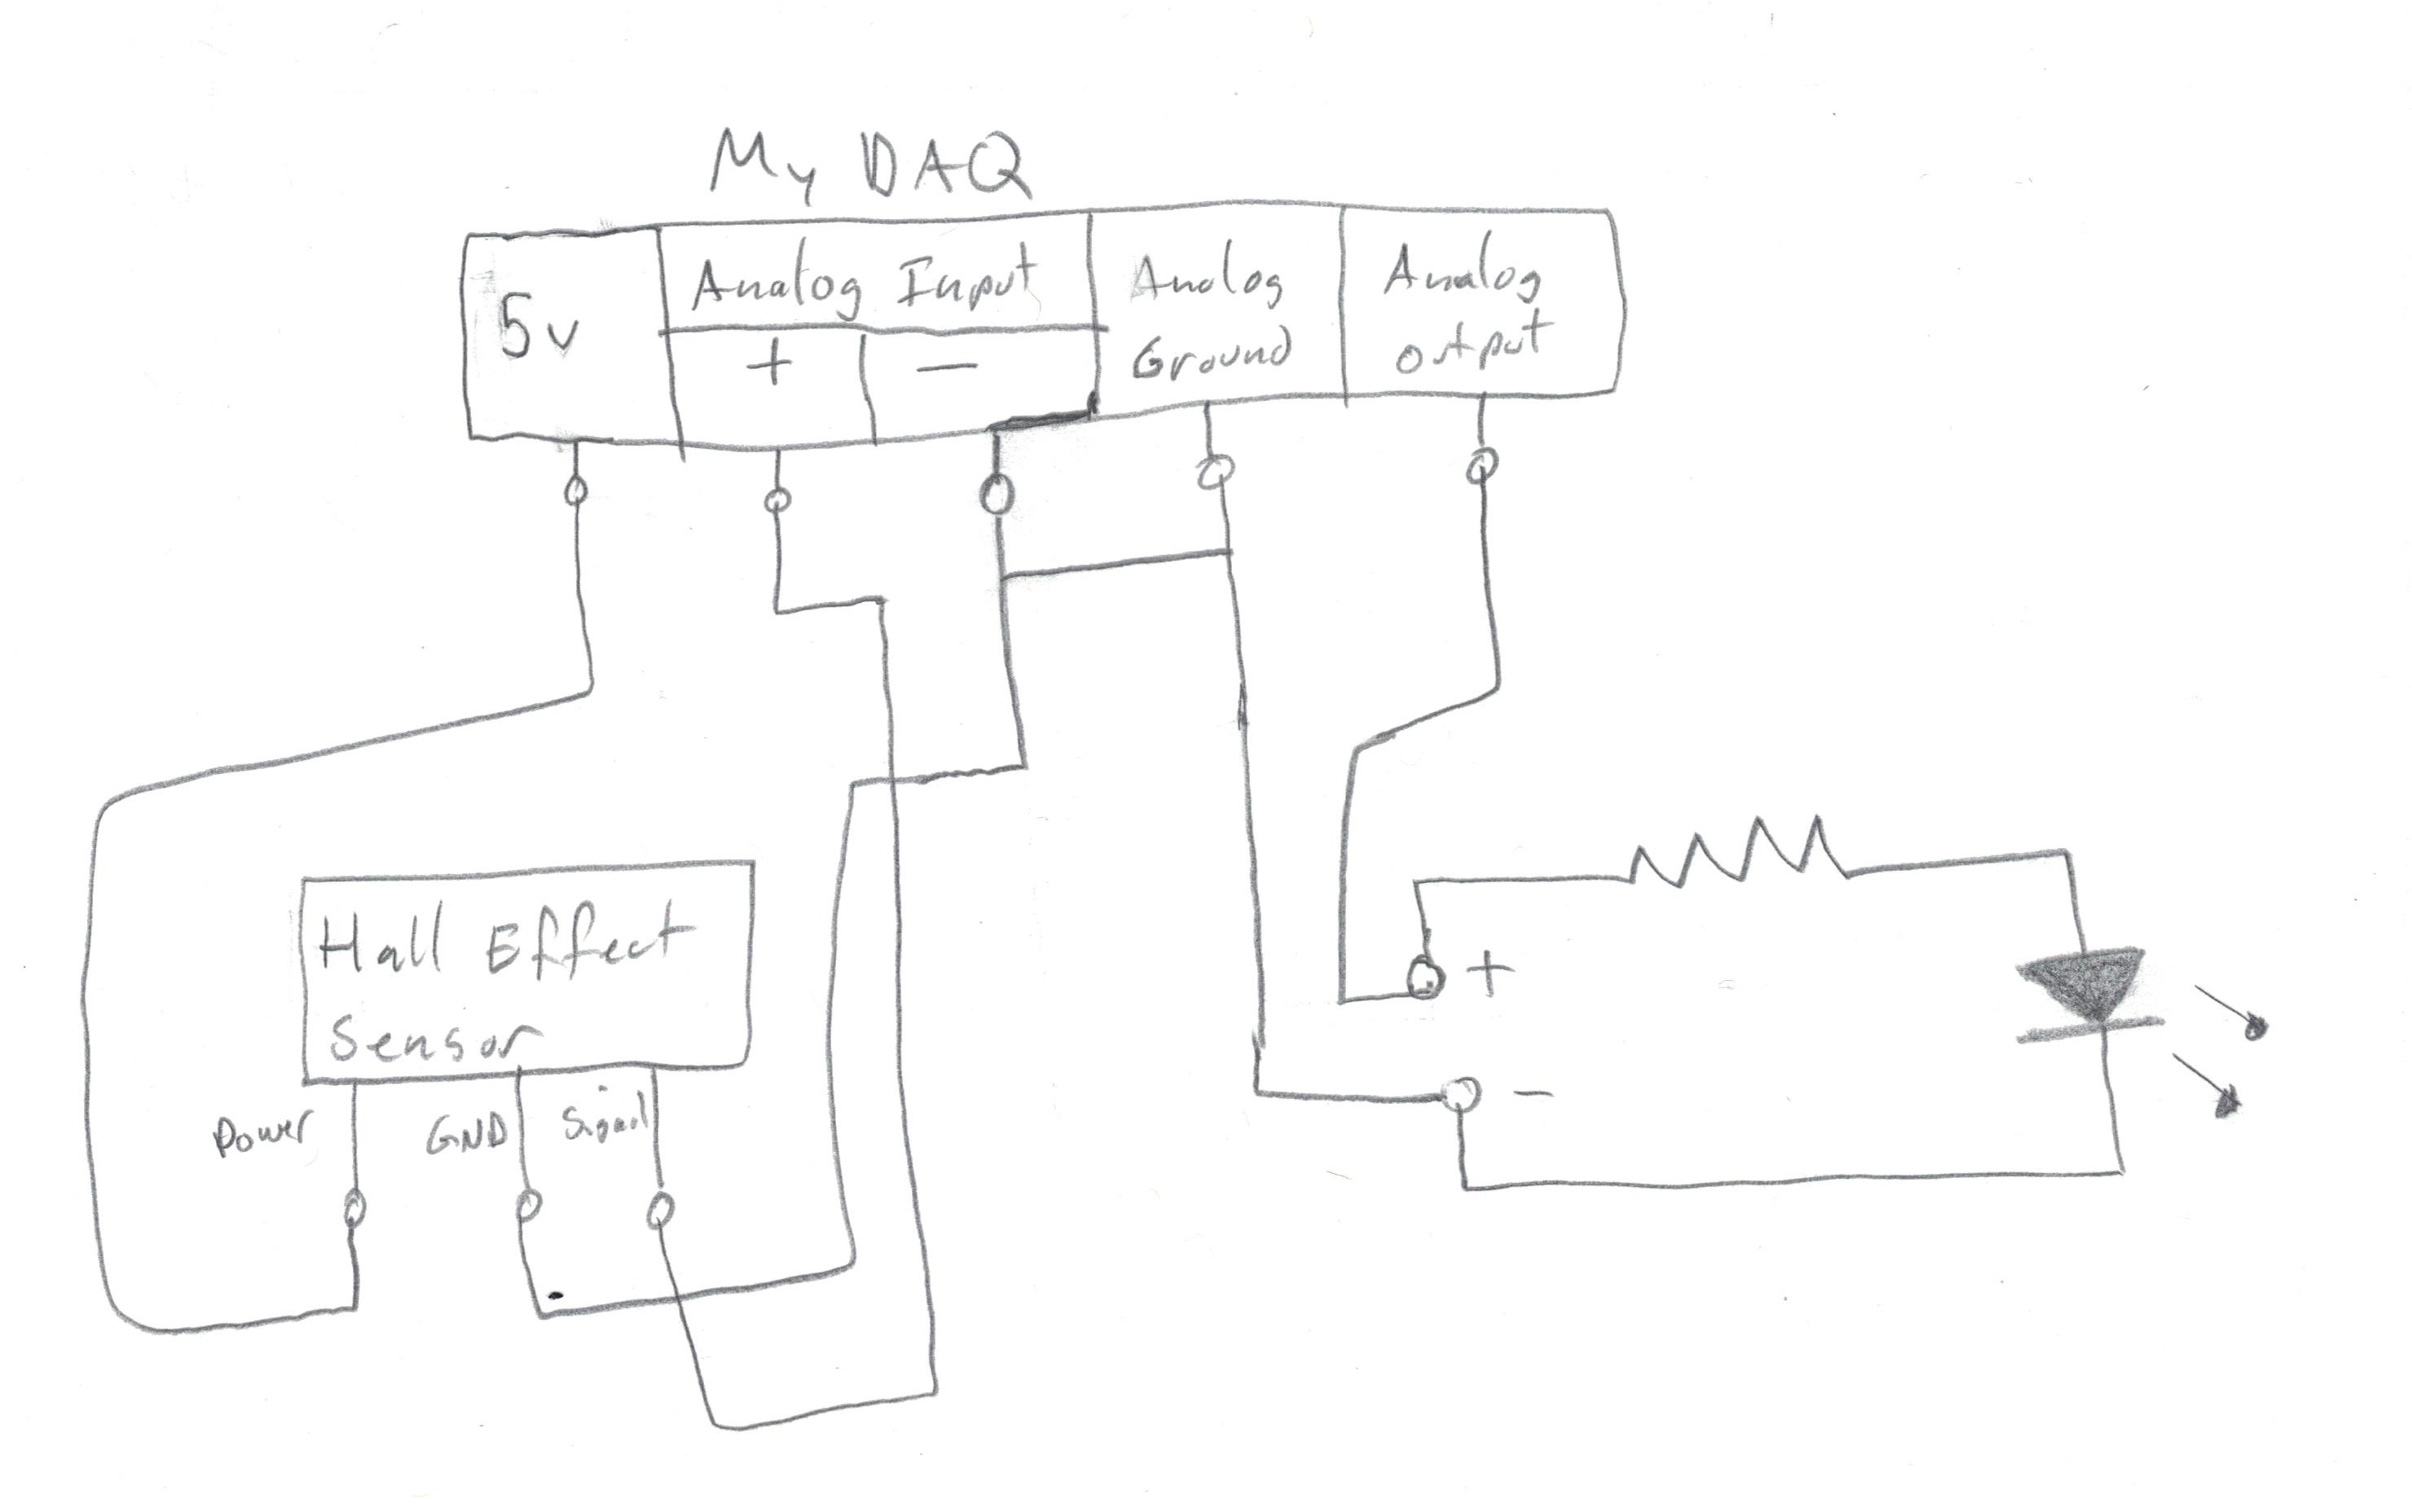 My DAQ
5v
Analog Input
+ −
Analog
Ground
Analog
output
Hall Effect
Sensor
Power
GND
Signal
+
−